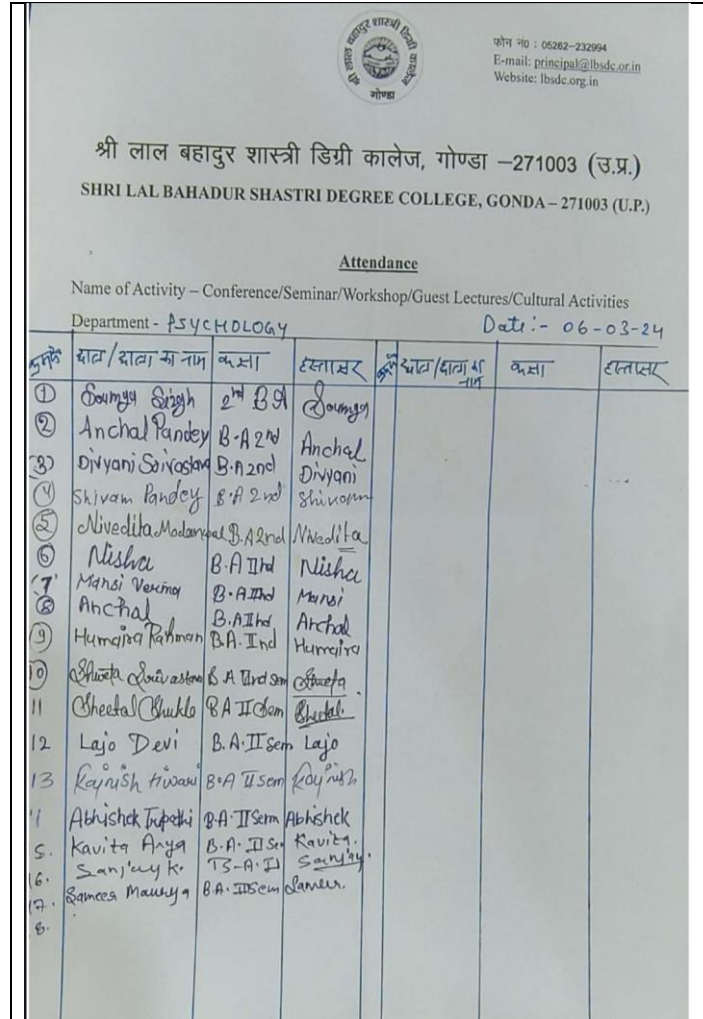 श्री लाल बहादुर शास्त्री डिग्री कालेज
गोण्डा
फोन नं0 : 05262-232994
E-mail: principal@lbsdc.or.in
Website: lbsdc.org.in
श्री लाल बहादुर शास्त्री डिग्री कालेज, गोण्डा –271003 (उ.प्र.)
SHRI LAL BAHADUR SHASTRI DEGREE COLLEGE, GONDA – 271003 (U.P.)
Attendance
Name of Activity – Conference/Seminar/Workshop/Guest Lectures/Cultural Activities
Department - PSYCHOLOGY Date:- 06-03-24
छात्र/छात्रा का नाम कक्षा हस्ताक्षर छात्र/छात्रा का नाम कक्षा हस्ताक्षर
1 Soumya Singh 2nd BA Soumya
2 Anchal Pandey B.A 2nd Anchal
3) Divyani Srivastava B.A 2nd Divyani
4 Shivam Pandey B.A 2nd Shivam
5 Nivedita B.A 2nd Nivedita
6 Nisha B.A IInd Nisha
7 Mansi Verma B.A IInd Mansi
8 Anchal B.A IInd Anchal
9 Humaira Rahman B.A. IInd Humaira
10 Shweta Srivastava B.A IInd Sem Shweta
11 Sheetal Shukla B A II Sem Sheetal.
12 Lajo Devi B.A. II Sem Lajo
13 B.A II Sem
1 Abhishek Tripathi B.A. II Sem Abhishek
5. Kavita Arya B.A. II Sem Kavita.
16. Sanjay K. B.A. Sanjay.
17. Sameer Maurya B.A. Sem Sameer.
8.